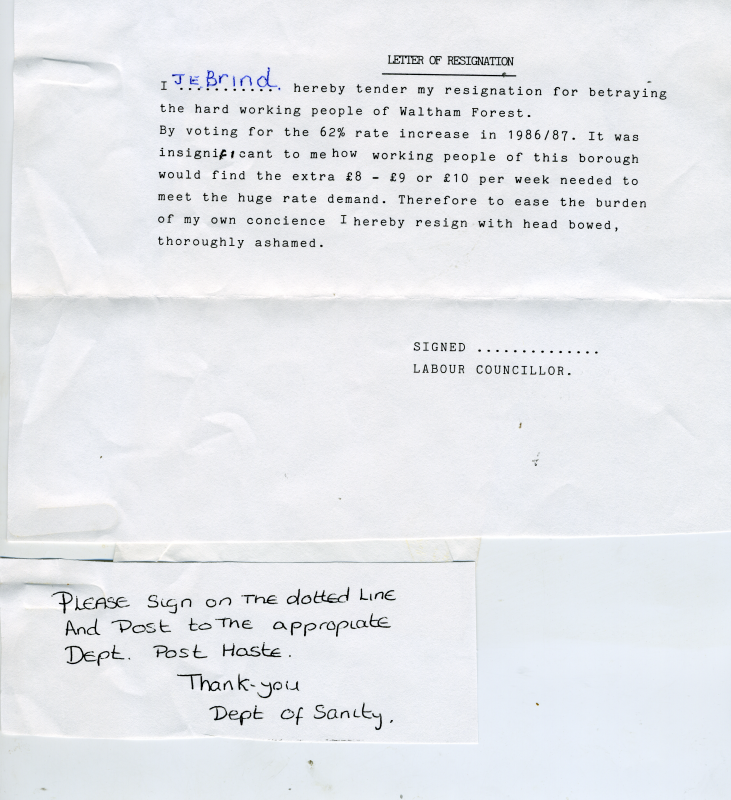 LETTER OF RESIGNATION
I JE Brind. hereby tender my resignation for betraying
the hard working people of Waltham Forest.
By voting for the 62% rate increase in 1986/87. It was
insignificant to me how working people of this borough
would find the extra £8 - £9 or £10 per week needed to
meet the huge rate demand. Therefore to ease the burden
of my own concience I hereby resign with head bowed,
thoroughly ashamed.
SIGNED ..............
LABOUR COUNCILLOR.
PLEASE Sign on THE dotted LINE
And Post to THE appropiate
Dept. Post Haste.
Thank-you
Dept of Sanity.